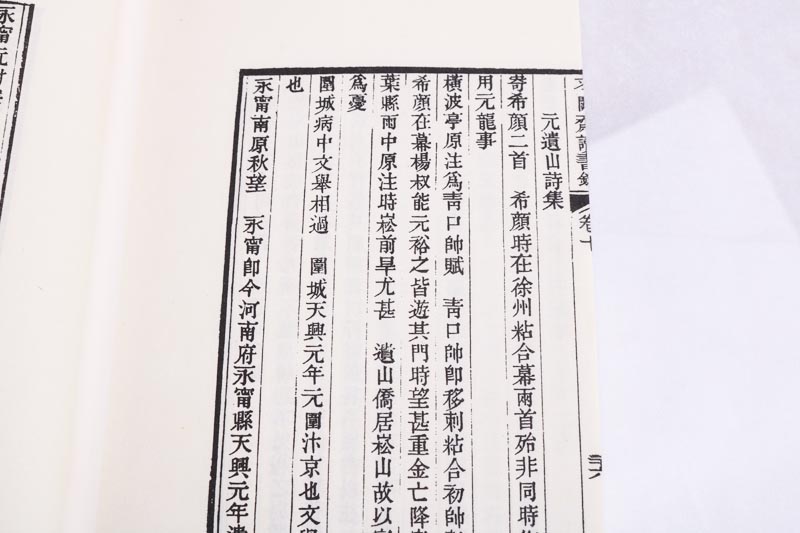 求闕齋讀書錄 卷十
元遺山詩集
寄希顏二首 希顏時在徐州粘合幕兩首殆非同時
用元龍事
橫波亭原注爲靑口帥賦 靑口帥卽移剌粘合初帥
希顏在幕楊叔能元裕之皆遊其門時望甚重金亡降
葉縣雨中原注時崧前旱尤甚 遺山僑居崧山故以
爲憂
圍城病中文舉相過 圍城天興元年元圍汴京也文
也
永甯南原秋望 永甯卽今河南府永甯縣天興元年
永甯元